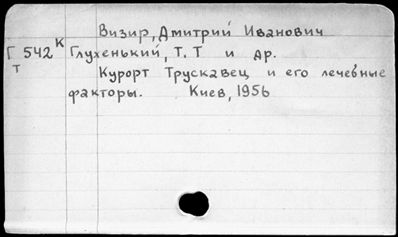 Визир, Дмитрий Иванович
Г 542 К Глухенький, Т. Т и др.
Т
Курорт Трускавец и его лечебные
факторы. Киев, 1956